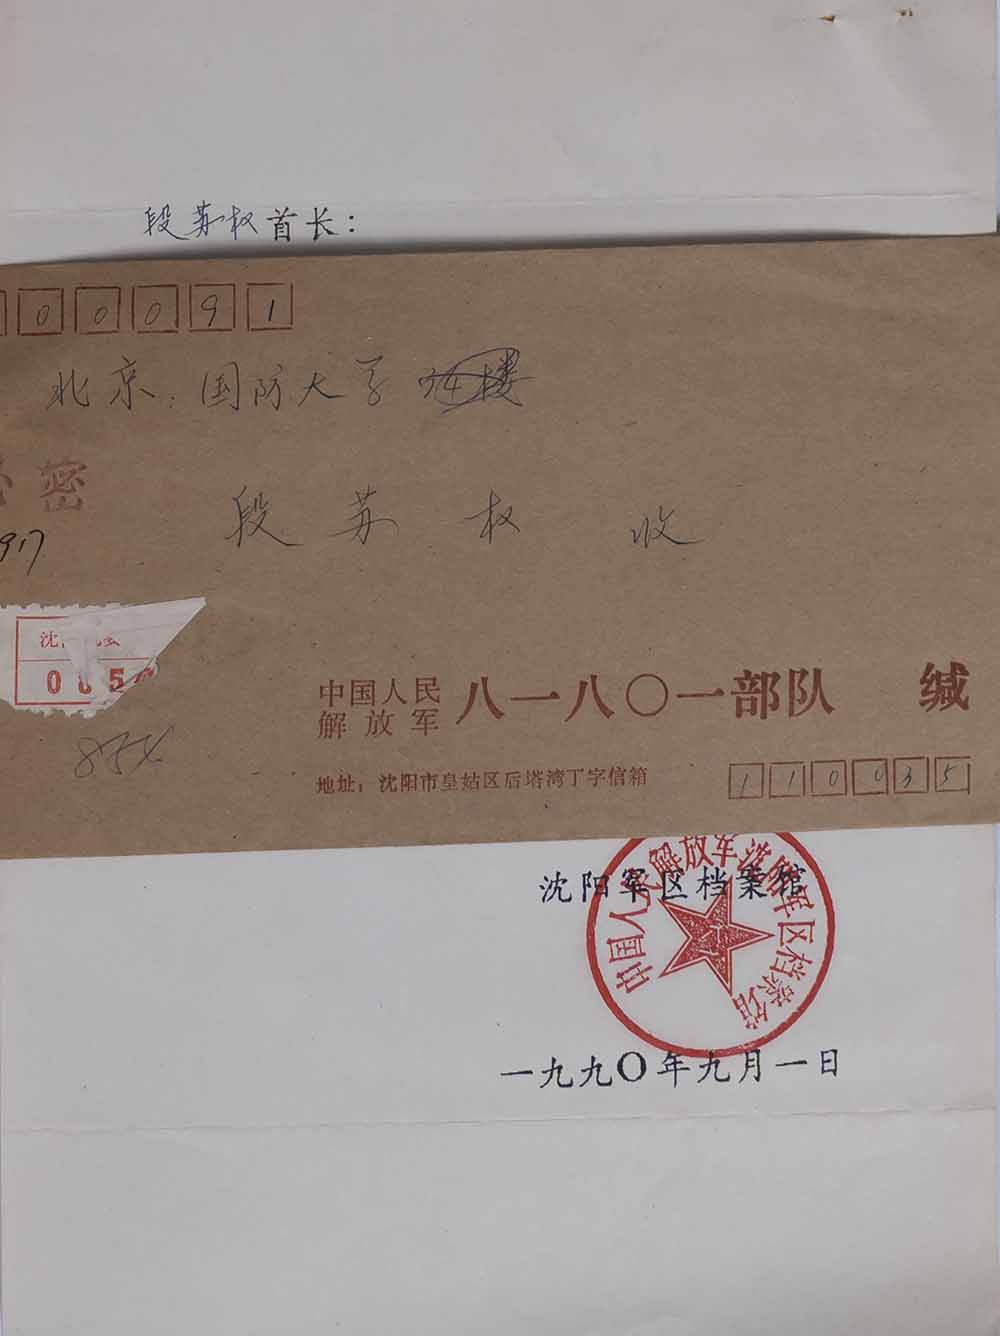 段苏权首长：
00091
北京：国防大学
密
段苏权 收
917
沈阳
中国人民解放军 八一八〇一部队 缄
地址：沈阳市皇姑区后塔湾丁字信箱
110035
中国人民解放军沈阳军区档案馆
沈阳军区档案馆
一九九〇年九月一日